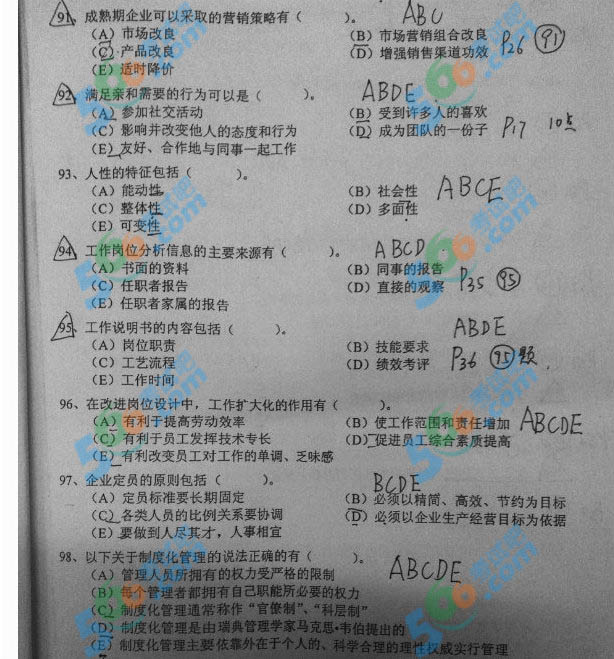 91、成熟期企业可以采取的营销策略有（ ）。 ABC
（A）市场改良 （B）市场营销组合改良
（C）产品改良 （D）增强销售渠道功效 P26 91
（E）适时降价
92、满足亲和需要的行为可以是（ ）。 ABDE
（A）参加社交活动 （B）受到许多人的喜欢
（C）影响并改变他人的态度和行为 （D）成为团队的一份子 P17
（E）友好、合作地与同事一起工作
93、人性的特征包括（ ）。 ABCE
（A）能动性 （B）社会性
（C）整体性 （D）多面性
（E）可变性
94、工作岗位分析信息的主要来源有（ ）。 ABCD
（A）书面的资料 （B）同事的报告
（C）任职者报告 （D）直接的观察 P35 95
（E）任职者家属的报告
95、工作说明书的内容包括（ ）。 ABDE
（A）岗位职责 （B）技能要求
（C）工艺流程 （D）绩效考评 P36 95题
（E）工作时间
96、在改进岗位设计中，工作扩大化的作用有（ ）。 ABCDE
（A）有利于提高劳动效率 （B）使工作范围和责任增加
（C）有利于员工发挥技术专长 （D）促进员工综合素质提高
（E）有利改变员工对工作的单调、乏味感
97、企业定员的原则包括（ ）。 BCDE
（A）定员标准要长期固定 （B）必须以精简、高效、节约为目标
（C）各类人员的比例关系要协调 （D）必须以企业生产经营目标为依据
（E）要做到人尽其才，人事相宜
98、以下关于制度化管理的说法正确的有（ ）。 ABCDE
（A）管理人员所拥有的权力受严格的限制
（B）每个管理者都拥有自己职能所必要的权力
（C）制度化管理通常称作“官僚制”、“科层制”
（D）制度化管理是由瑞典管理学家马克思·韦伯提出的
（E）制度化管理主要依靠外在于个人的、科学合理的理性权威实行管理